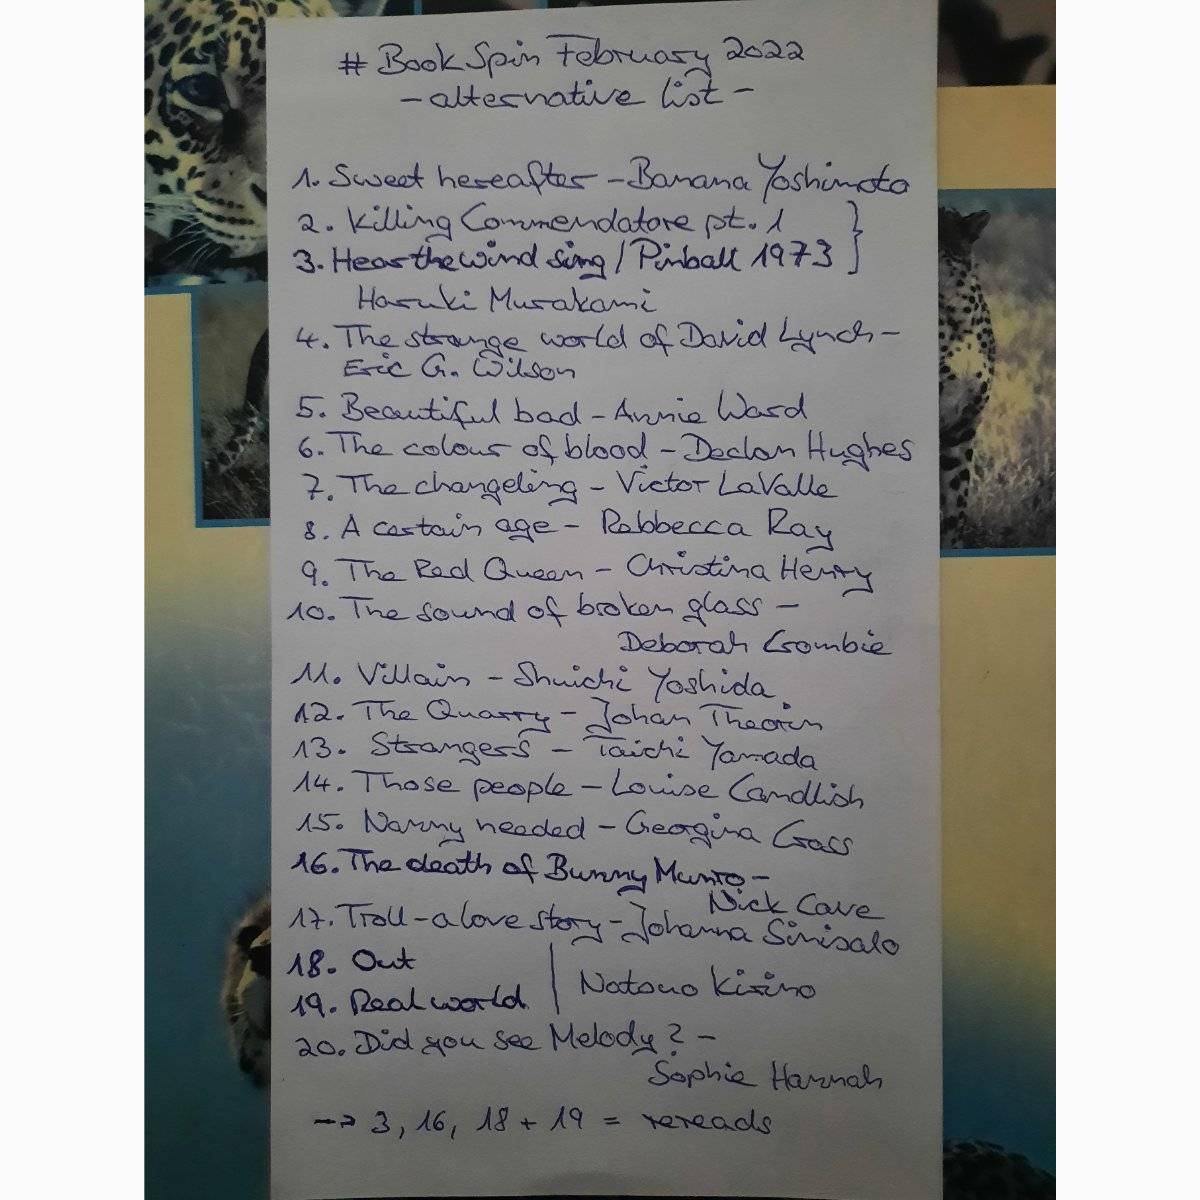 # BookSpin February 2022
- alternative list -
1. Sweet hereafter - Banana Yoshimoto
2. Killing Commendatore pt. 1
3. Hear the wind sing / Pinball 1973
Haruki Murakami
4. The strange world of David Lynch -
Eric G. Wilson
5. Beautiful bad - Annie Ward
6. The colour of blood - Declan Hughes
7. The changeling - Victor LaValle
8. A certain age - Rebbecca Ray
9. The Red Queen - Christina Henry
10. The sound of broken glass -
Deborah Crombie
11. Villain - Shuichi Yoshida
12. The Quarry - Johan Theorin
13. Strangers - Taichi Yamada
14. Those people - Louise Candlish
15. Nanny needed - Georgina Cross
16. The death of Bunny Munro -
Nick Cave
17. Troll - a love story - Johanna Sinisalo
18. Out
19. Real world
Natsuo Kirino
20. Did you see Melody? -
Sophie Hannah
→ 3, 16, 18 + 19 = rereads